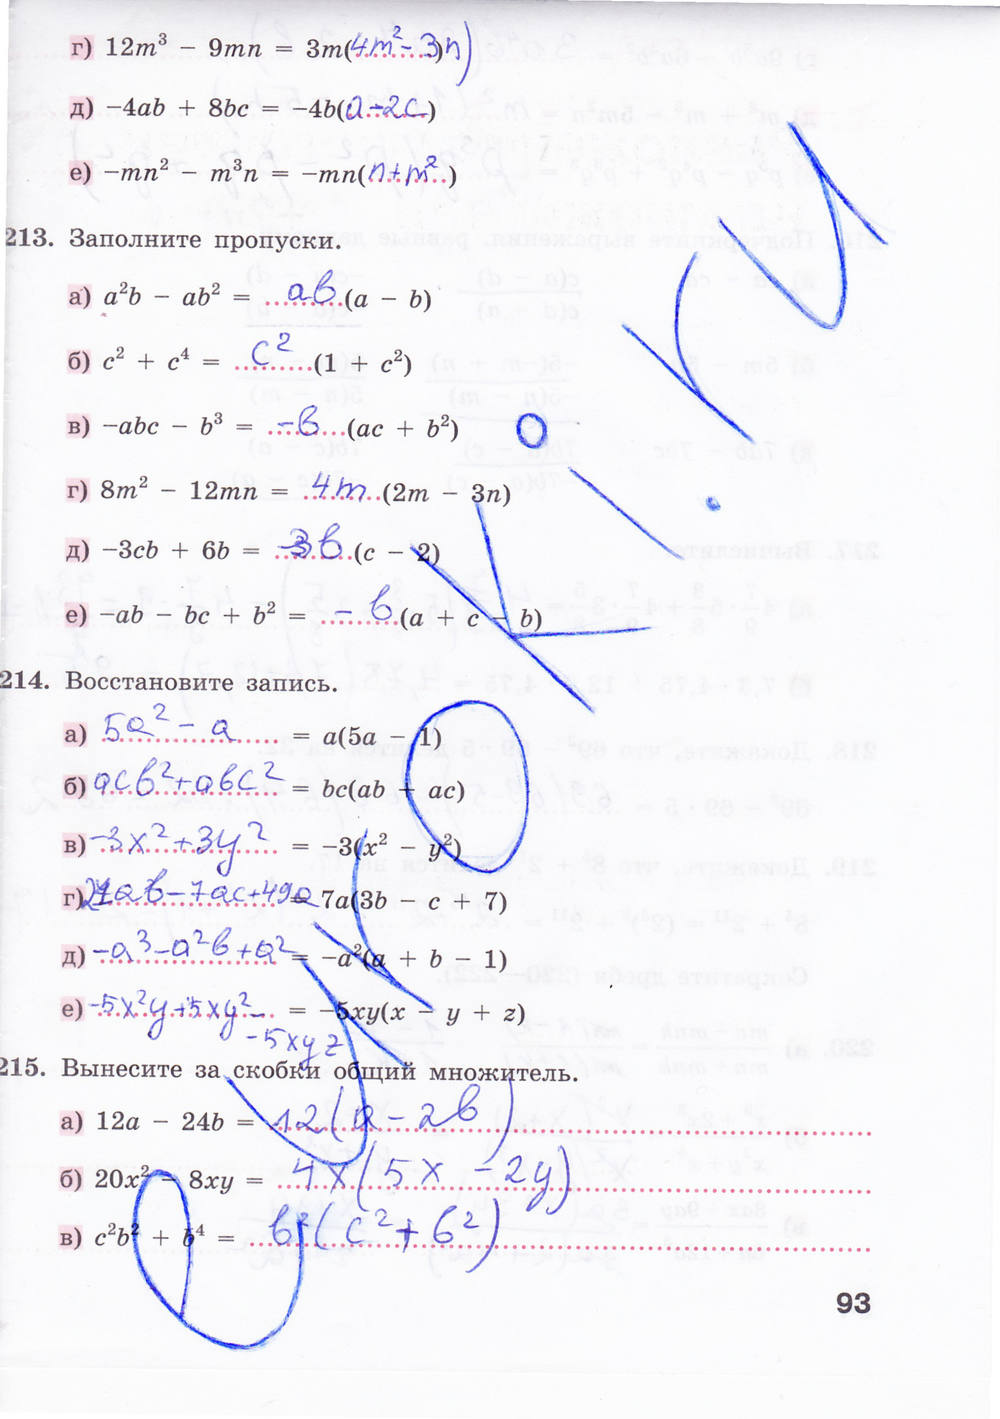 г) 12m³ − 9mn = 3m(4m² − 3n)
д) −4ab + 8bc = −4b(a − 2c)
е) −mn² − m³n = −mn(n + m²)
213. Заполните пропуски.
а) a²b − ab² = ab(a − b)
б) c² + c⁴ = c²(1 + c²)
в) −abc − b³ = −b(ac + b²)
г) 8m² − 12mn = 4m(2m − 3n)
д) −3cb + 6b = −3b(c − 2)
е) −ab − bc + b² = −b(a + c − b)
214. Восстановите запись.
а) 5a² − a = a(5a − 1)
б) acb² + abc² = bc(ab + ac)
в) −3x² + 3y² = −3(x² − y²)
г) 21ab − 7ac + 49a = 7a(3b − c + 7)
д) −a³ − a²b + a² = −a²(a + b − 1)
е) −5x²y + 5xy² − = −5xy(x − y + z)
− 5xyz
215. Вынесите за скобки общий множитель.
а) 12a − 24b = 12(a − 2b)
б) 20x² − 8xy = 4x(5x − 2y)
в) c²b² + b⁴ = b²(c² + b²)
93